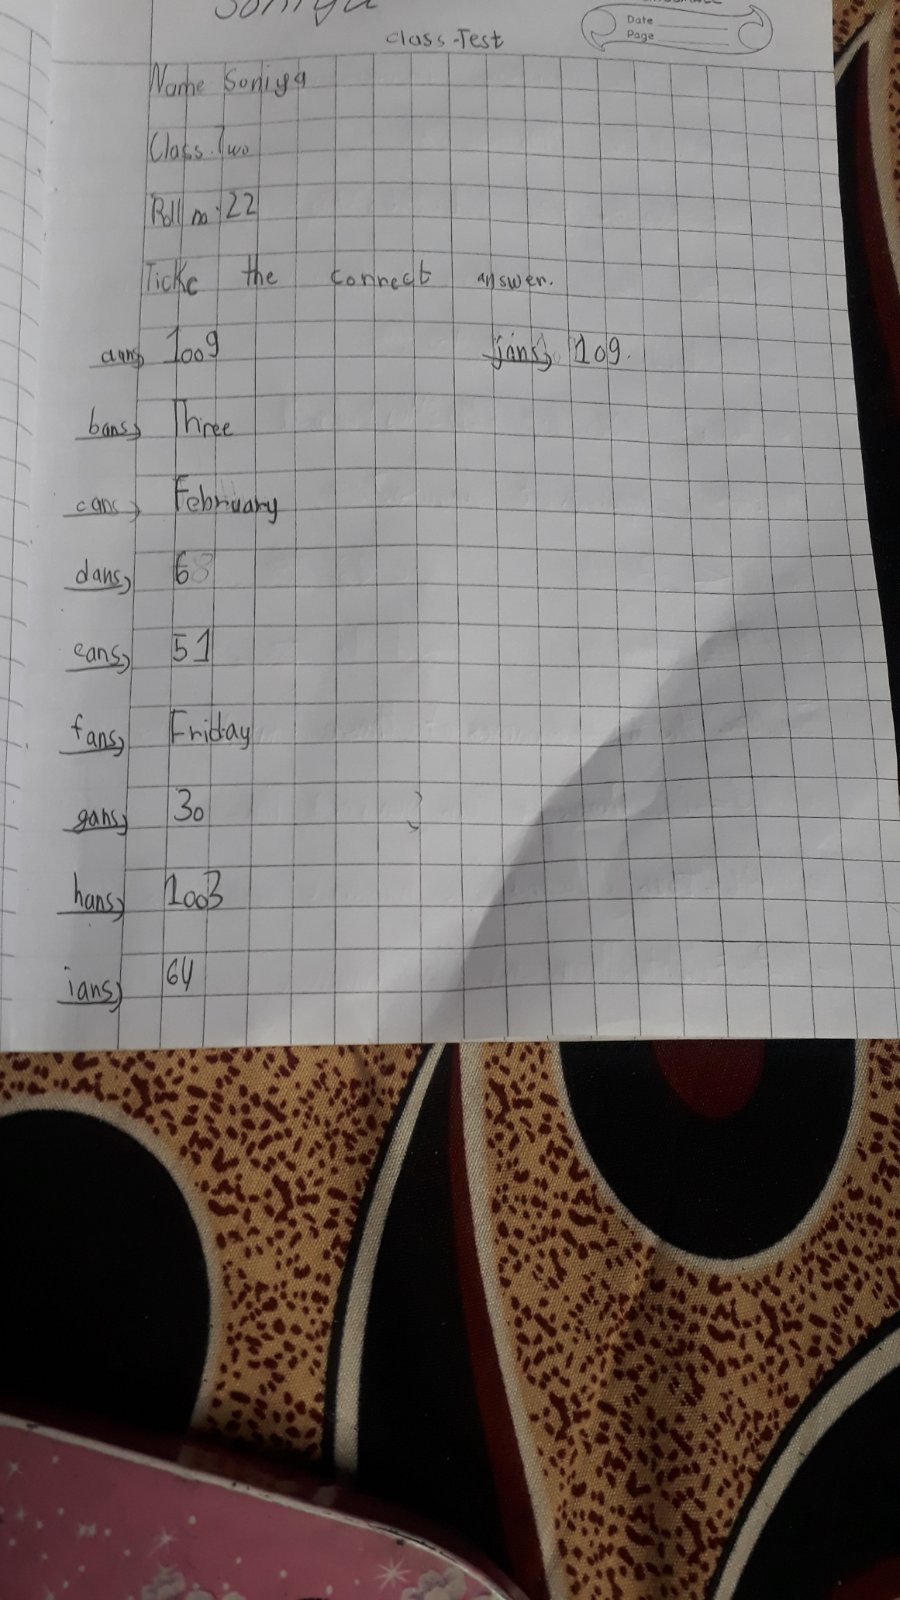 Soniya
Class-Test
Date
Page
Name Soniya
Class. Two
Roll no. 22
Tickc the connect answer.
a ans, 1009
j ans, 109.
b ans, Three
c ans, February
d ans, 68
e ans, 51
f ans, Friday
g ans, 30
h ans, 1003
i ans, 64